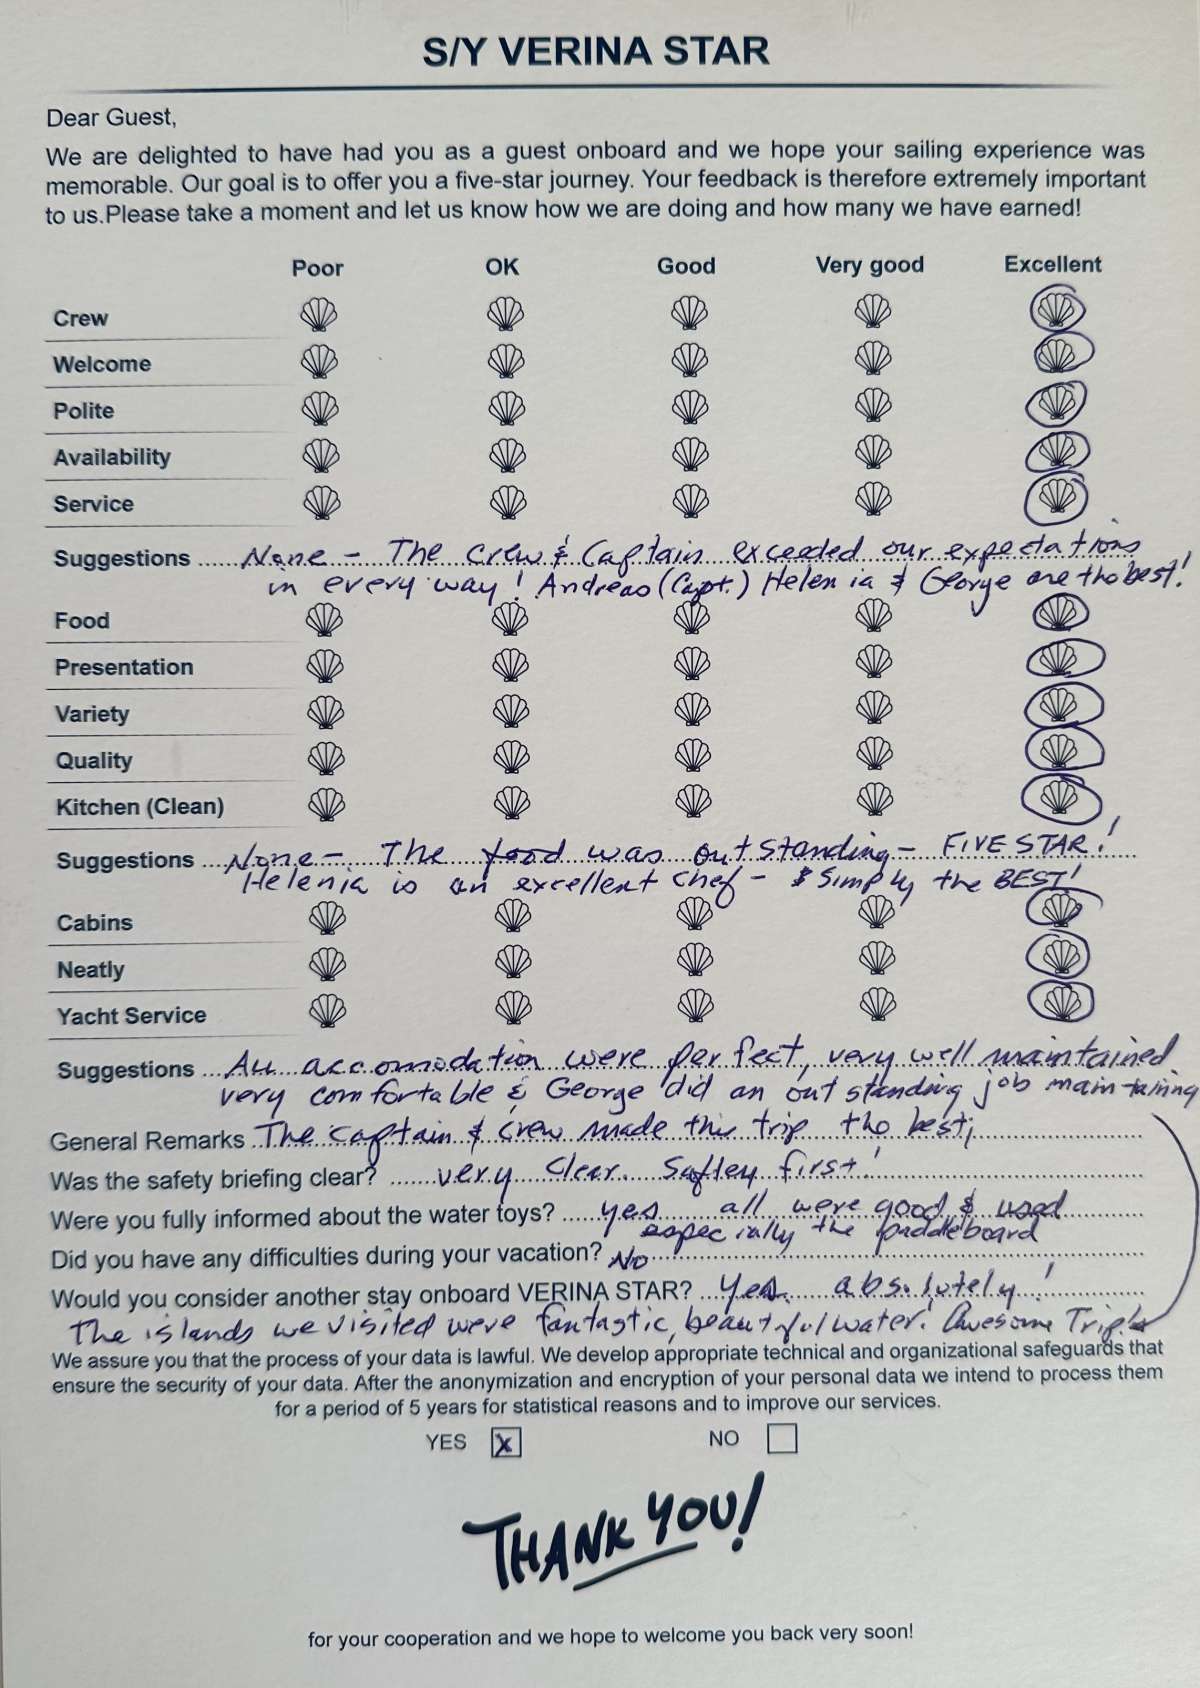 S/Y VERINA STAR
Dear Guest,
We are delighted to have had you as a guest onboard and we hope your sailing experience was
memorable. Our goal is to offer you a five-star journey. Your feedback is therefore extremely important
to us.Please take a moment and let us know how we are doing and how many we have earned!
Poor OK Good Very good Excellent
Crew
Welcome
Polite
Availability
Service
Suggestions ..... None - The crew & Captain exceeded our expectations
in every way! Andreas (Capt.) Helenia & George are the best!
Food
Presentation
Variety
Quality
Kitchen (Clean)
Suggestions ..... None - The food was outstanding - FIVE STAR!
Helenia is an excellent chef - & simply the BEST!
Cabins
Neatly
Yacht Service
Suggestions ..... All accomodation were perfect, very well maintained
very comfortable & George did an outstanding job maintaining
General Remarks The captain & crew made this trip the best,
Was the safety briefing clear? ..... very clear. Saftey first!
Were you fully informed about the water toys? ..... yes all were good & used
especially the paddleboard
Did you have any difficulties during your vacation? No
Would you consider another stay onboard VERINA STAR? ..... Yes. absolutely!
The islands we visited were fantastic, beautiful water! Awesome Trip!
We assure you that the process of your data is lawful. We develop appropriate technical and organizational safeguards that
ensure the security of your data. After the anonymization and encryption of your personal data we intend to process them
for a period of 5 years for statistical reasons and to improve our services.
YES x NO
THANK YOU!
for your cooperation and we hope to welcome you back very soon!